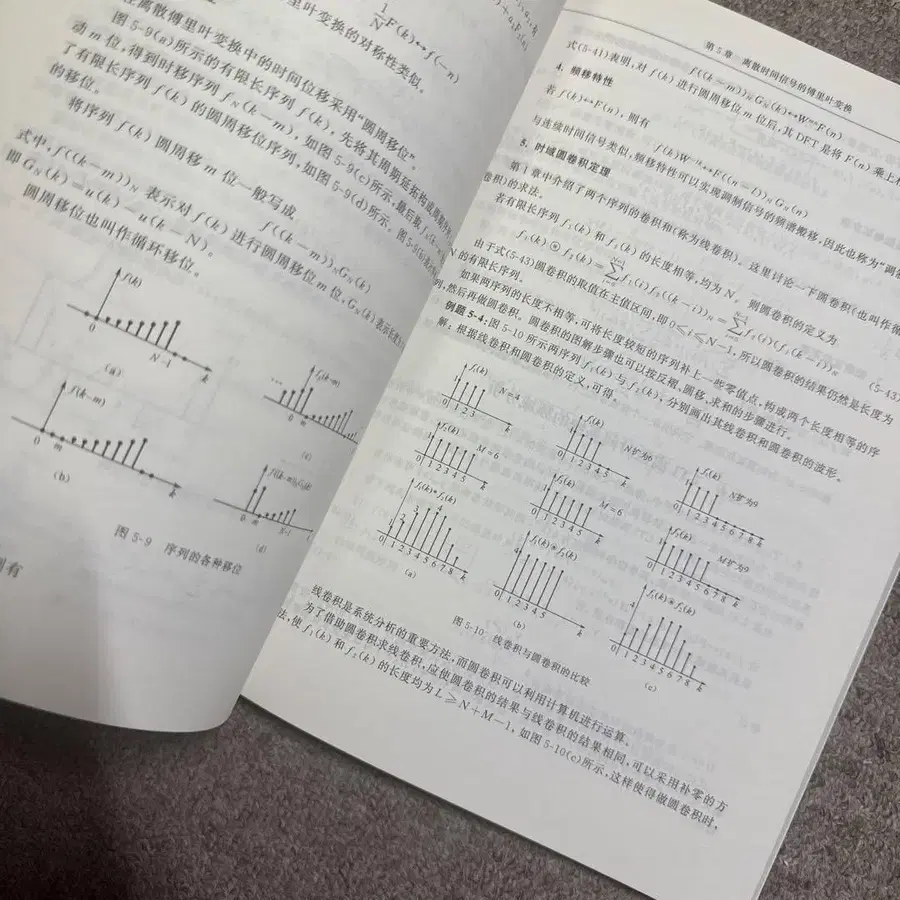 1/N F(k)↔f(-n)
里叶变换的对称性类似。
在离散傅里叶变换中的时间位移采用“圆周移位”
图5-9(a)所示的有限长序列f(k),先将其周期延拓构成周期序列
动m位,得到时移序列f_N(k-m),如图5-9(c)所示,最后
了有限长序列f(k)的圆周移位序列,如图5-9(d)所示。图5-9(b)
的移位。
将序列f(k)圆周移m位一般写成
f((k-m))_N G_N(k)
式中,f((k-m))_N表示对f(k)进行圆周移位m位,G_N(k)表示长度为
即G_N(k)=u(k)-u(k-N)。
圆周移位也叫作循环移位。
f(k)
0 N-1 k
(a)
f_N(k-m)
0 m k
(c)
f(k-m)
0 m k
(b)
f((k-m))_N G_N(k)
0 m N-1 k
(d)
图5-9 序列的各种移位
则有
第5章 离散时间信号的傅里叶变换
f((k-m))_N G_N(k)↔W^{mn}F(n)
式(5-41)表明,对f(k)进行圆周移位m位后,其DFT是将F(n)乘上相
4. 频移特性
若f(k)↔F(n),则有
f(k)W^{-lk}↔F((n-l))_N G_N(n)
与连续时间信号类似,频移特性可以实现调制信号的频谱搬移,因此也称为“调制
5. 时域圆卷积定理
第1章中介绍了两个序列的卷积和(称为线卷积)。这里讨论一下圆卷积(也叫作循
卷积)的求法。
若有限长序列f₁(k)和f₂(k)的长度相等,均为N。则圆卷积的定义为
f₁(k)⊛f₂(k)=∑_{i=0}^{N-1}f₁(i)f₂((k-i))_N=∑_{i=0}^{N-1}f₂(i)f₁((k-i))_N (5-43)
由于式(5-43)圆卷积的取值在主值区间,即0≤i≤N-1,所以圆卷积的结果仍然是长度为
N的有限长序列。
如果两序列的长度不相等,可将长度较短的序列补上一些零值点,构成两个长度相等的序
列,然后再做圆卷积。圆卷积的图解步骤也可以按反褶、圆移、求和的步骤进行。
例题5-4:图5-10所示两序列f₁(k)与f₂(k),分别画出其线卷积和圆卷积的波形。
解:根据线卷积和圆卷积的定义,可得。
f₁(k) N=4
1
0 1 2 3 k
f₁(k) N扩为6
1
0 1 2 3 4 5 k
f₁(k) N扩为9
1
0 1 2 3 4 5 6 7 8 k
f₂(k) M=6
1
0 1 2 3 4 5 k
f₂(k) M=6
1
0 1 2 3 4 5 k
f₂(k) M扩为9
1
0 1 2 3 4 5 6 7 8 k
f₁(k)*f₂(k)
1 2 3 4
0 1 2 3 4 5 6 7 8 k
(a)
f₁(k)⊛f₂(k)
4
0 1 2 3 4 5 k
(b)
f₁(k)⊛f₂(k)
4
0 1 2 3 4 5 6 7 8 k
(c)
图5-10 线卷积与圆卷积的比较
线卷积是系统分析的重要方法,而圆卷积可以利用计算机进行运算。
为了借助圆卷积求线卷积,应使圆卷积的结果与线卷积的结果相同,可以采用补零的方
法,使f₁(k)和f₂(k)的长度均为L≥N+M-1,如图5-10(c)所示,这样使得做圆卷积时,